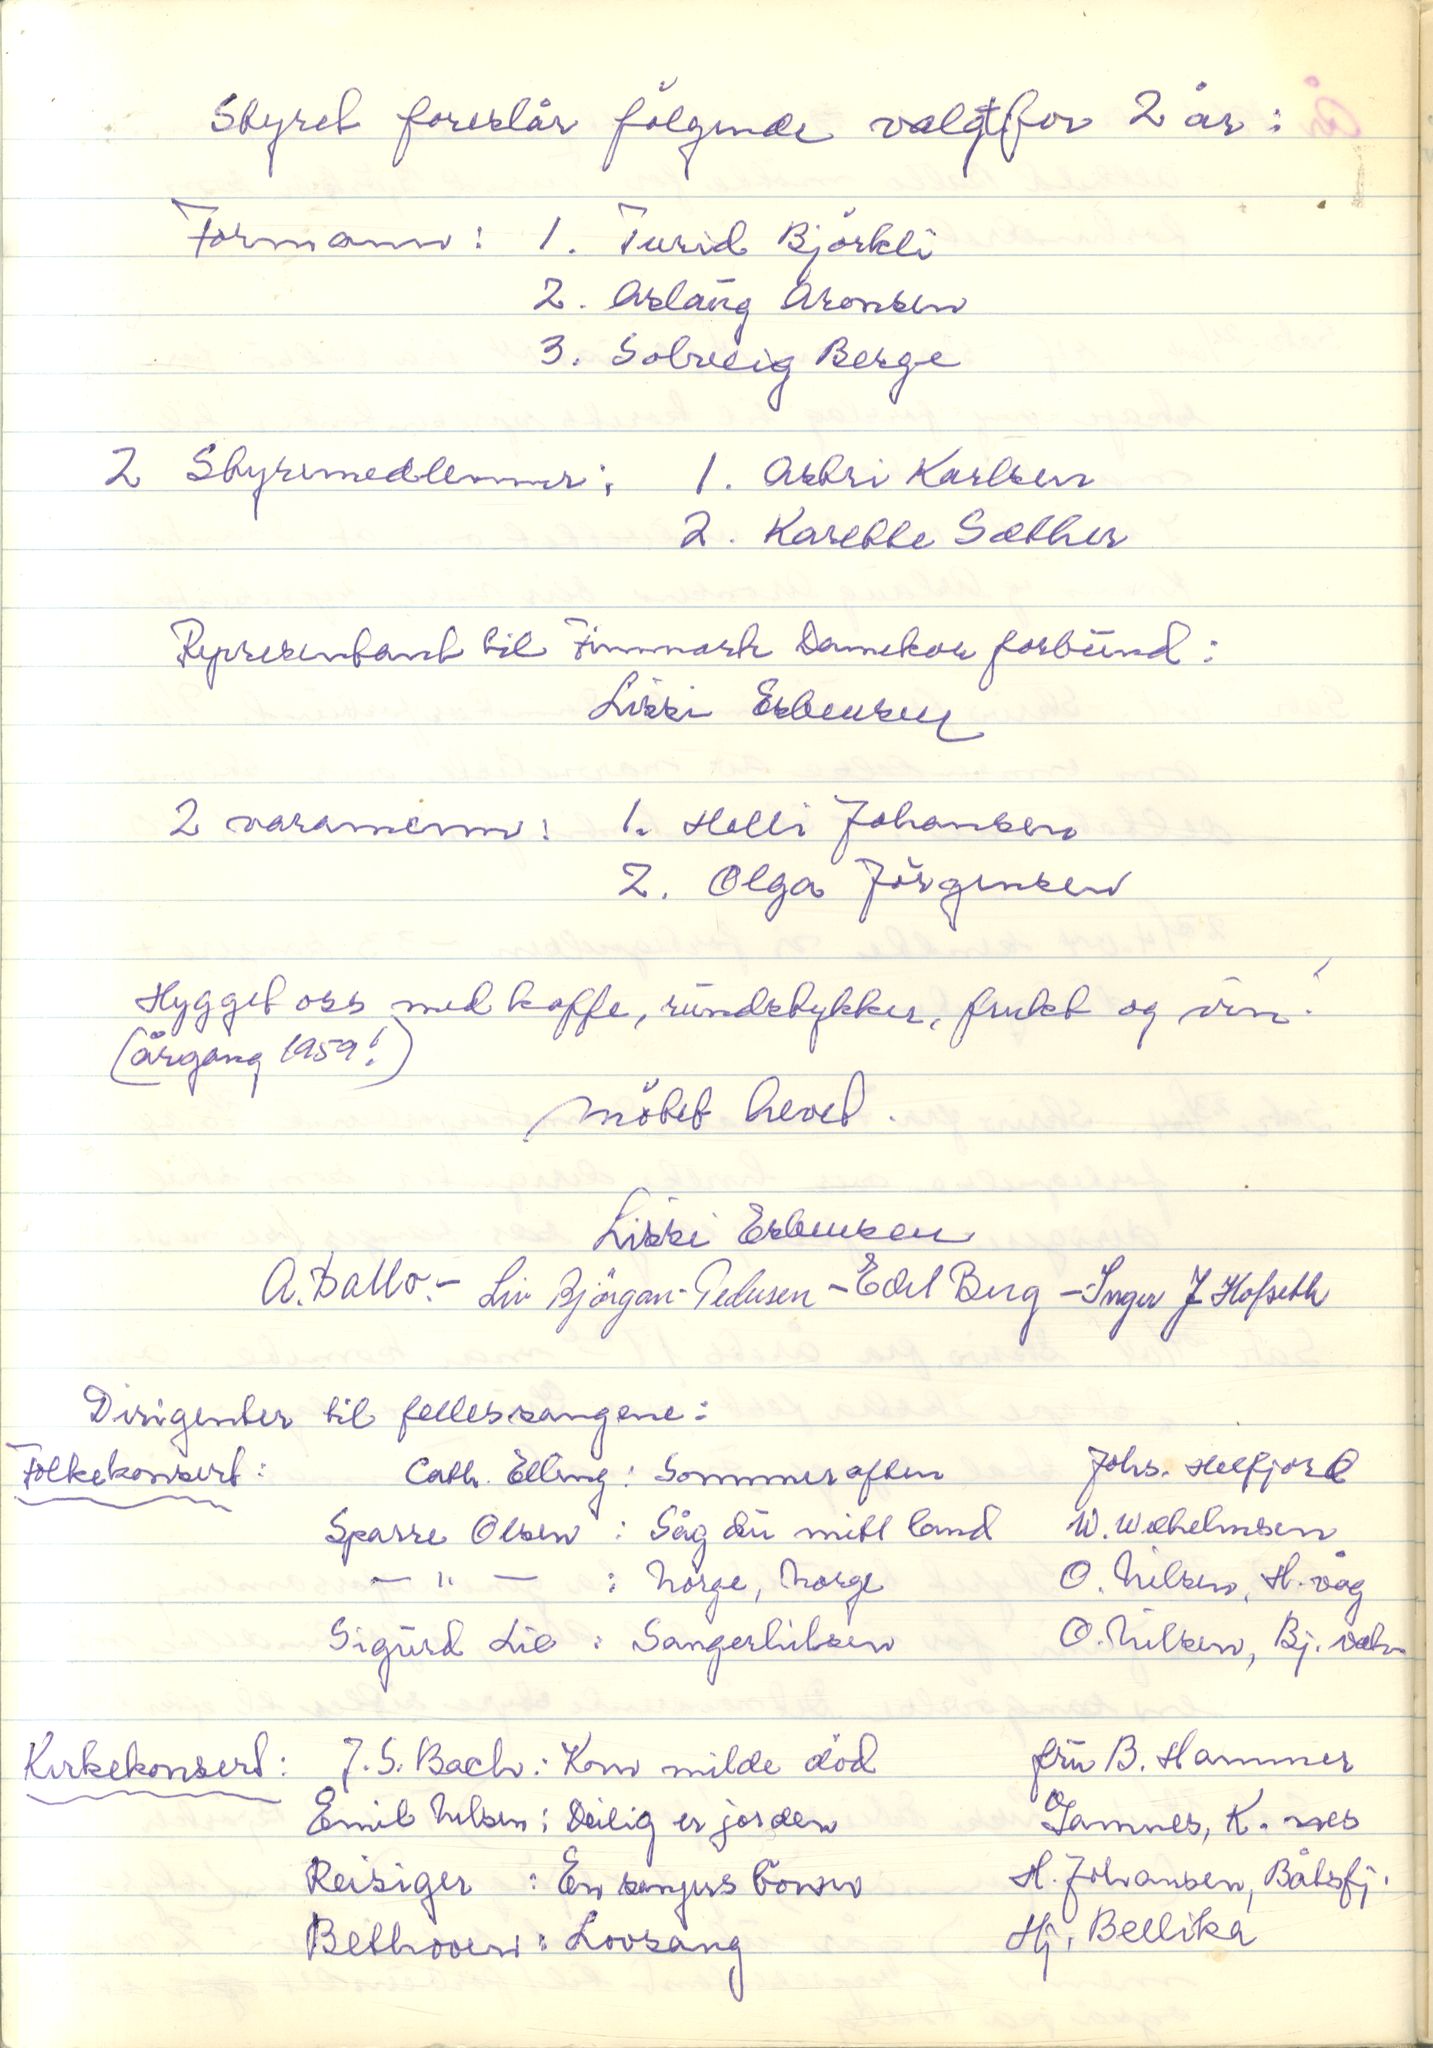 Styret foreslår følgende valgt for 2 år:
Formann: 1. Turid Bjørkli
2. Aslaug Aronsen
3. Solveig Berge
2 Styremedlemmer: 1. Astri Karlsen
2. Karette Sæther
Representant til Finnmark Damekorforbund:
Lissi Esbensen
2 varamenn: 1. Helli Johansen
2. Olga Jørgensen
Hygget oss med kaffe, rundstykker, frukt og vin!
(årgang 1959!)
Møtet hevet.
Lissi Esbensen
A. Ballo. - Liv Bjørgan-Pedersen - Edel Berg - Inger J Hofseth
Dirigenter til fellessangene:
Folkekonsert: Cath. Elling: Sommeraften Johs. Helfjord
Sparre Olsen : Såg du mitt land W. Wilhelmsen
— " — : Norge, Norge O. Nilsen, H. våg
Sigurd Lie : Sangerhilsen O. Nilsen, Bj. vatn
Kirkekonsert: J. S. Bach: Kom milde död fru B. Hammer
Emil Nilsen: Deilig er jorden Jamnes, K. nes
Reisiger : En sangers bönn H. Johansen, Båtsfj.
Bethoven: Lovsang Hj. Bellika